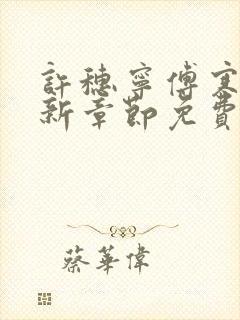 許穗寧傅寒
新章節免費
蔡華偉